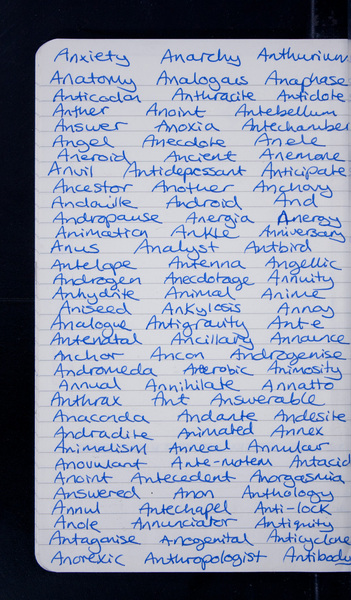 Anxiety Anarchy Anthurium
Anatomy Analogous Anaphase
Anticodon Anthracite Antidote
Anther Anoint Antebellum
Answer Anoxia Antechamber
Angel Anecdote Anele
Aneroid Ancient Anemone
Anvil Antidepessant Anticipate
Ancestor Another Anchovy
Andouille Android And
Andropause Anergia Anergy
Animation Ankle Anniversary
Anus Analyst Antbird
Antelope Antenna Angellic
Androgen Anecdotage Annuity
Anhydrite Animal Anime
Aniseed Ankylosis Annoy
Analogue Antigravity Ante
Antenatal Ancillary Announce
Anchor Ancon Androgenise
Andromeda Anaerobic Animosity
Annual Annihilate Annatto
Anthrax Ant Answerable
Anaconda Andante Andesite
Andradite Animated Annex
Animalism Anneal Annular
Anovulant Ante-motem Antacid
Anoint Antecedent Anorgasmia
Answered Anon Anthology
Annul Antechapel Anti-lock
Anole Annunciator Antiquity
Antagonise Anogenital Anticyclone
Anorexic Anthropologist Antibody